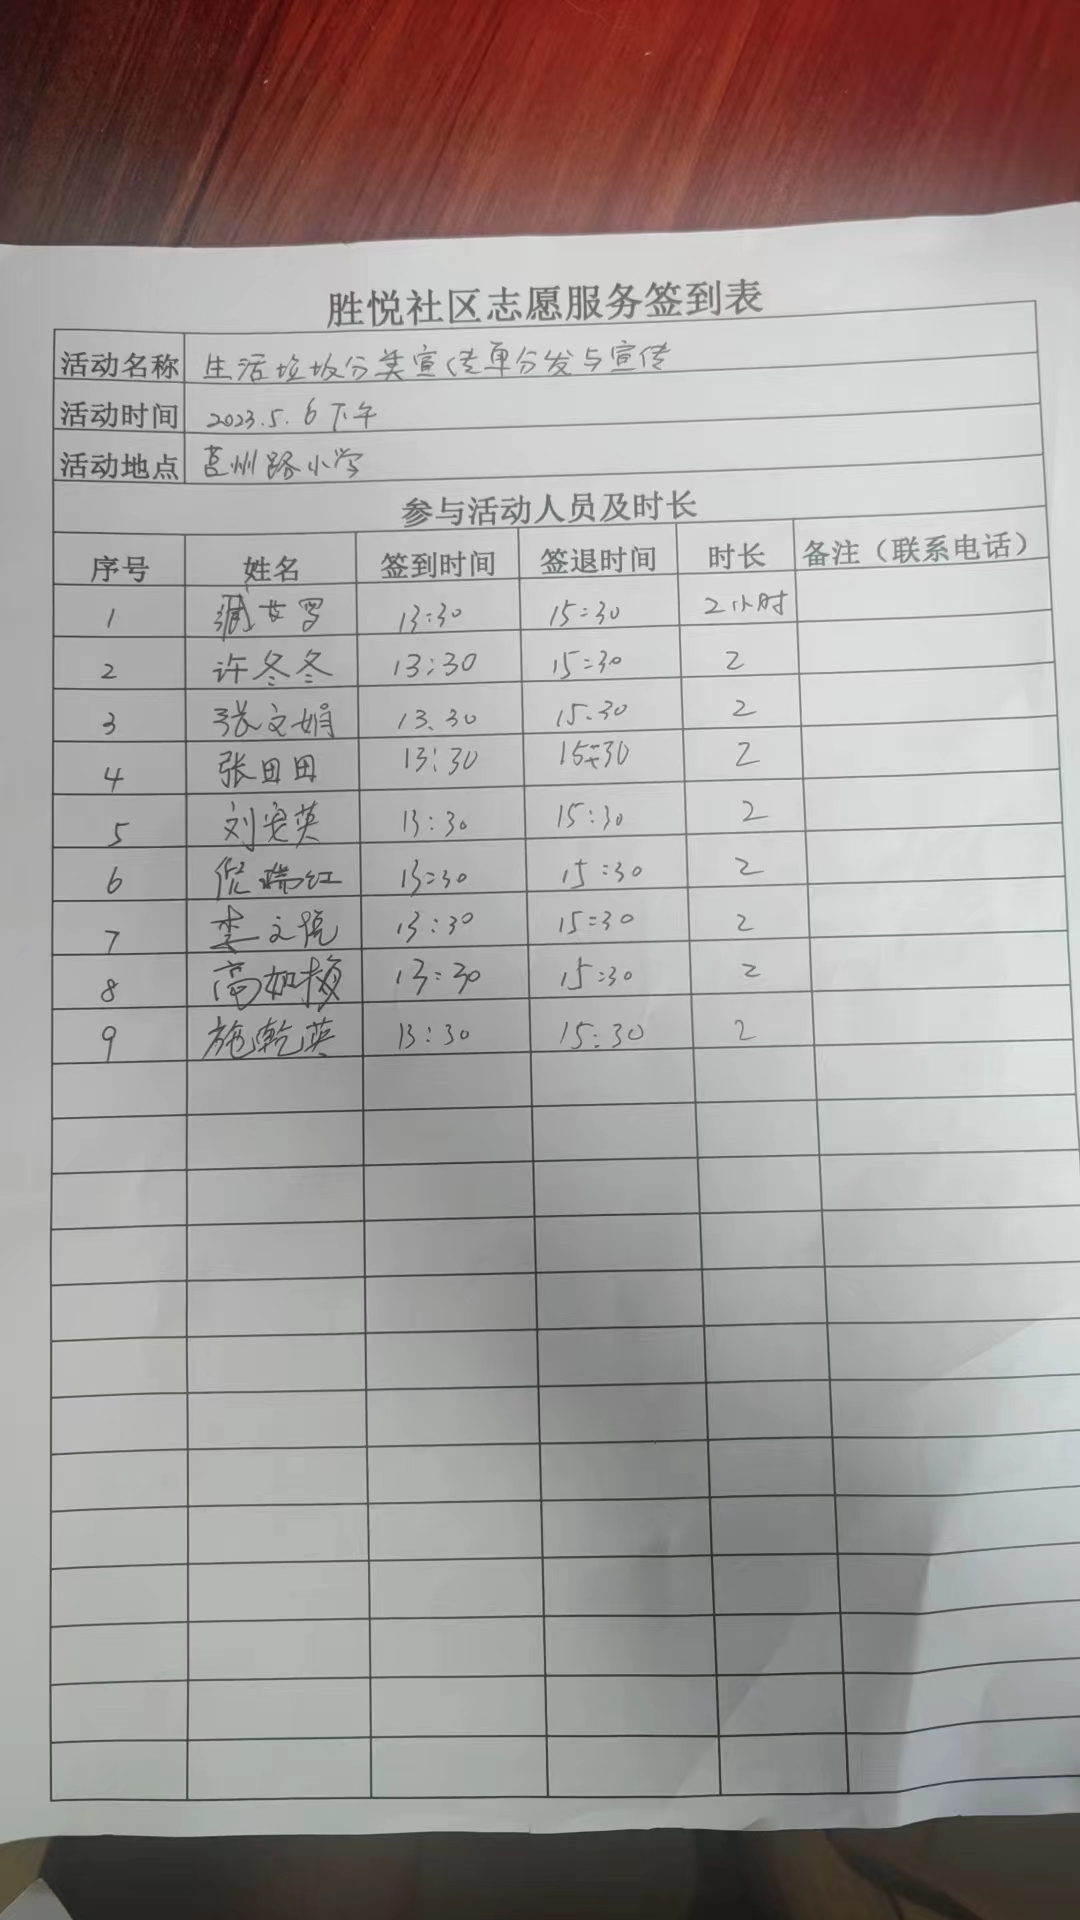 胜悦社区志愿服务签到表
活动名称 生活垃圾分类宣传单分发与宣传
活动时间 2023.5.6下午
活动地点 莒州路小学
参与活动人员及时长
序号 姓名 签到时间 签退时间 时长 备注（联系电话）
1 13:30 15:30 2小时
2 许冬冬 13:30 15:30 2
3 张文娟 13.30 15.30 2
4 张田田 13:30 15:30 2
5 刘安英 13:30 15:30 2
6 倪瑞红 13:30 15:30 2
7 李文悦 13:30 15:30 2
8 高如梅 13:30 15:30 2
9 施乾英 13:30 15:30 2